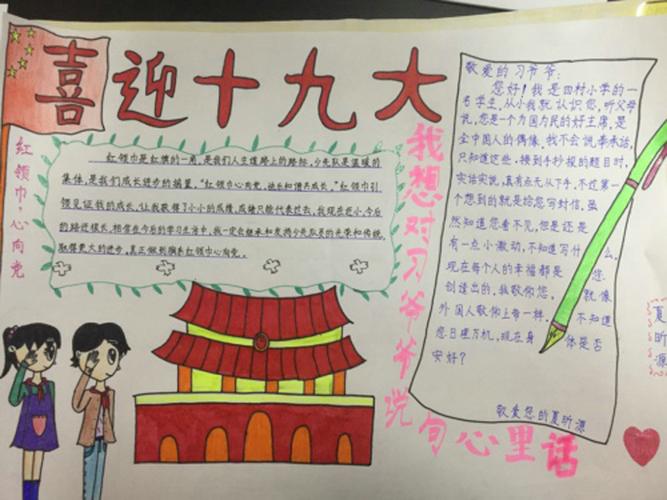 喜迎十九大
红领巾·心向党
红领巾是红旗的一角,是我们人生道路上的路标,少先队是温暖的
集体,是我们成长进步的摇篮,“红领巾心向党,
红领巾引
领见证我的成长,让我取得了小小的成绩,成绩只能代表过去,我现在还小,今后
的路还很长,相信在今后的学习生活中,我一定会继承和发扬少先队员的光荣和传统,
取得更大的进步,真正做到胸系红领巾心向党。
我想对习爷爷说句心里话
敬爱的习爷爷:
您好!我是四村小学的一
名学生,从小我就认识您,听父母
说,您是一个为国为民的好主席,是
全中国人的偶像,我不会说奉承话,
只知道这些,接到手抄报的题目时,
实话实说,真有点无从下手,不过第一
个想到的就是给您写封信,虽
然知道您看不见,但是还是
有一点小激动,不知道写什么,
现在每个人的幸福都是您
创造出的,我敬仰您,就像
外国人敬仰上帝一样,不知道
您日理万机,现在身体是否
安好?
敬爱您的夏昕源
夏昕源